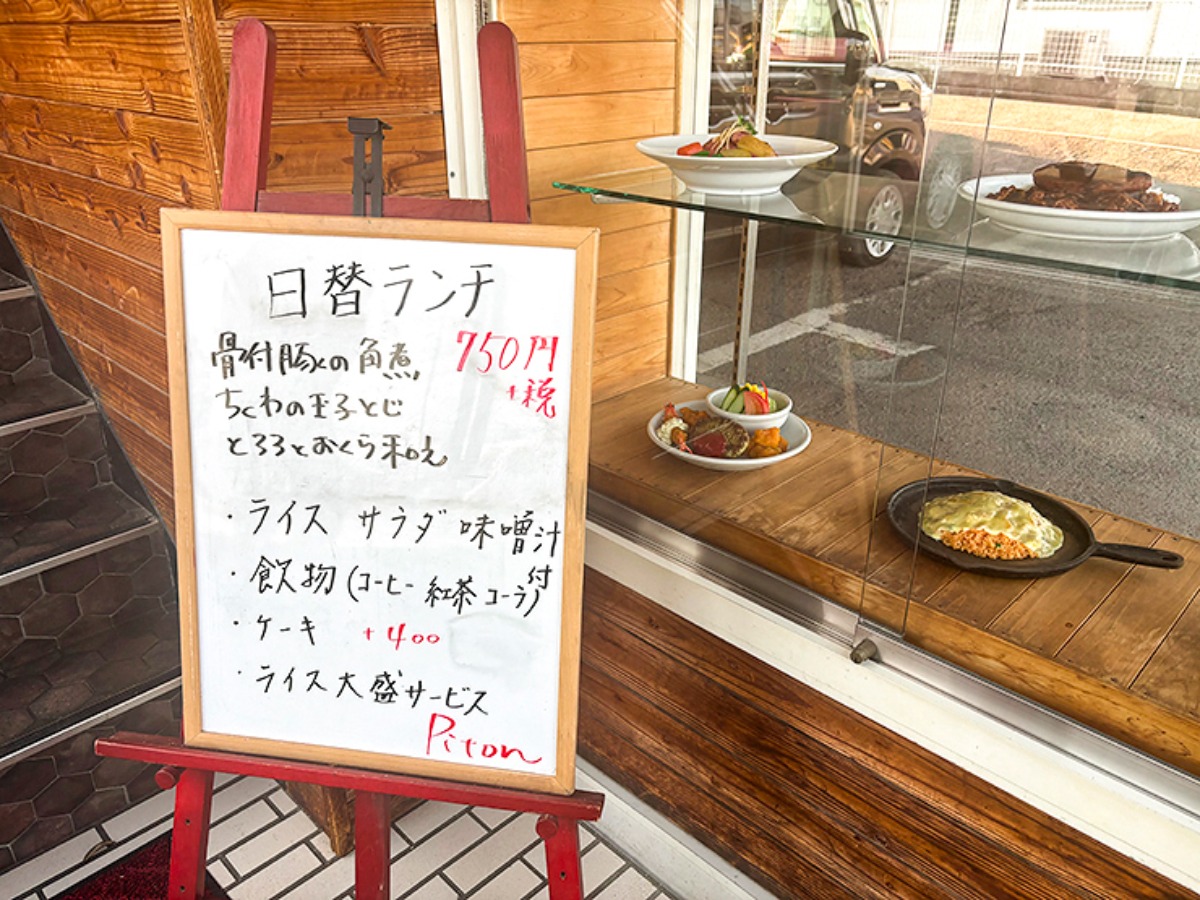 日替ランチ
骨付豚の角煮 750円
+税
ちくわの玉子とじ
とろろとおくら和え
・ライス サラダ 味噌汁
・飲物(コーヒー 紅茶 コーラ)付
・ケーキ +400
・ライス大盛サービス
Piton